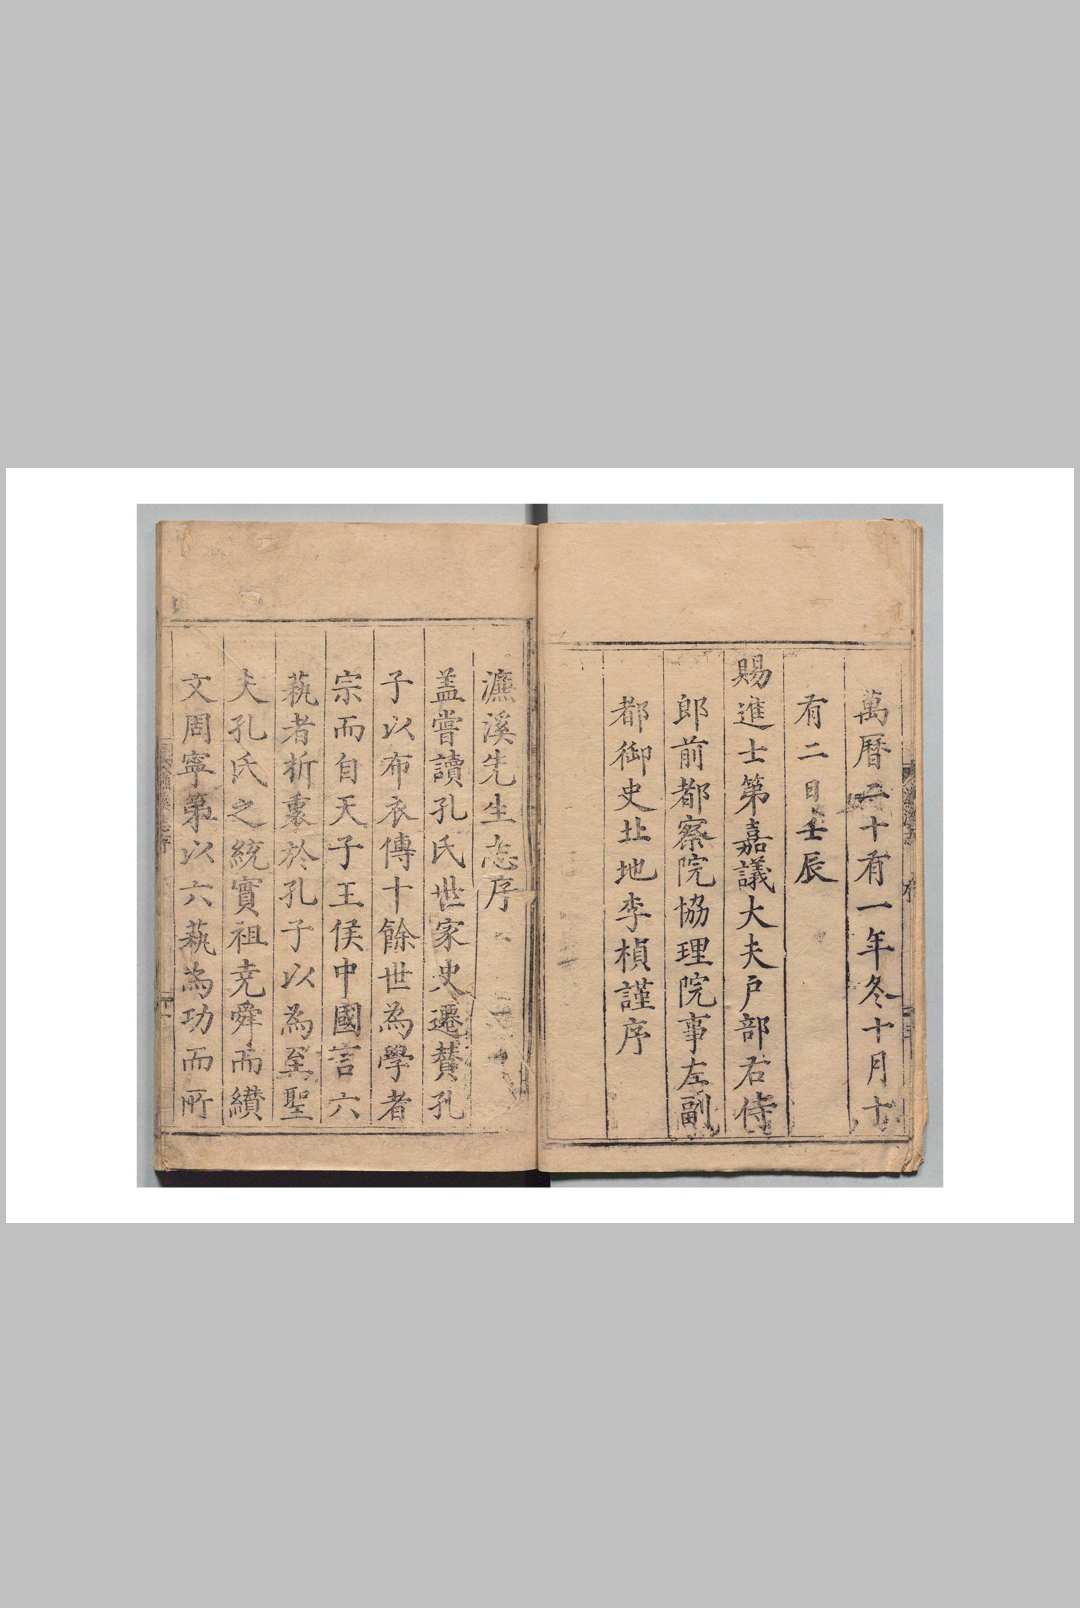 萬曆二十有一年冬十月十
有二日壬辰
賜進士第嘉議大夫戶部右侍
郎前都察院協理院事左副
都御史北地李楨謹序
濂溪先生志序
盖嘗讀孔氏世家史遷賛孔
子以布衣傳十餘世為學者
宗而自天子王侯中國言六
蓺者折裏於孔子以為至聖
夫孔氏之統實祖尭舜而纉
文周寧第以六蓺為功而所